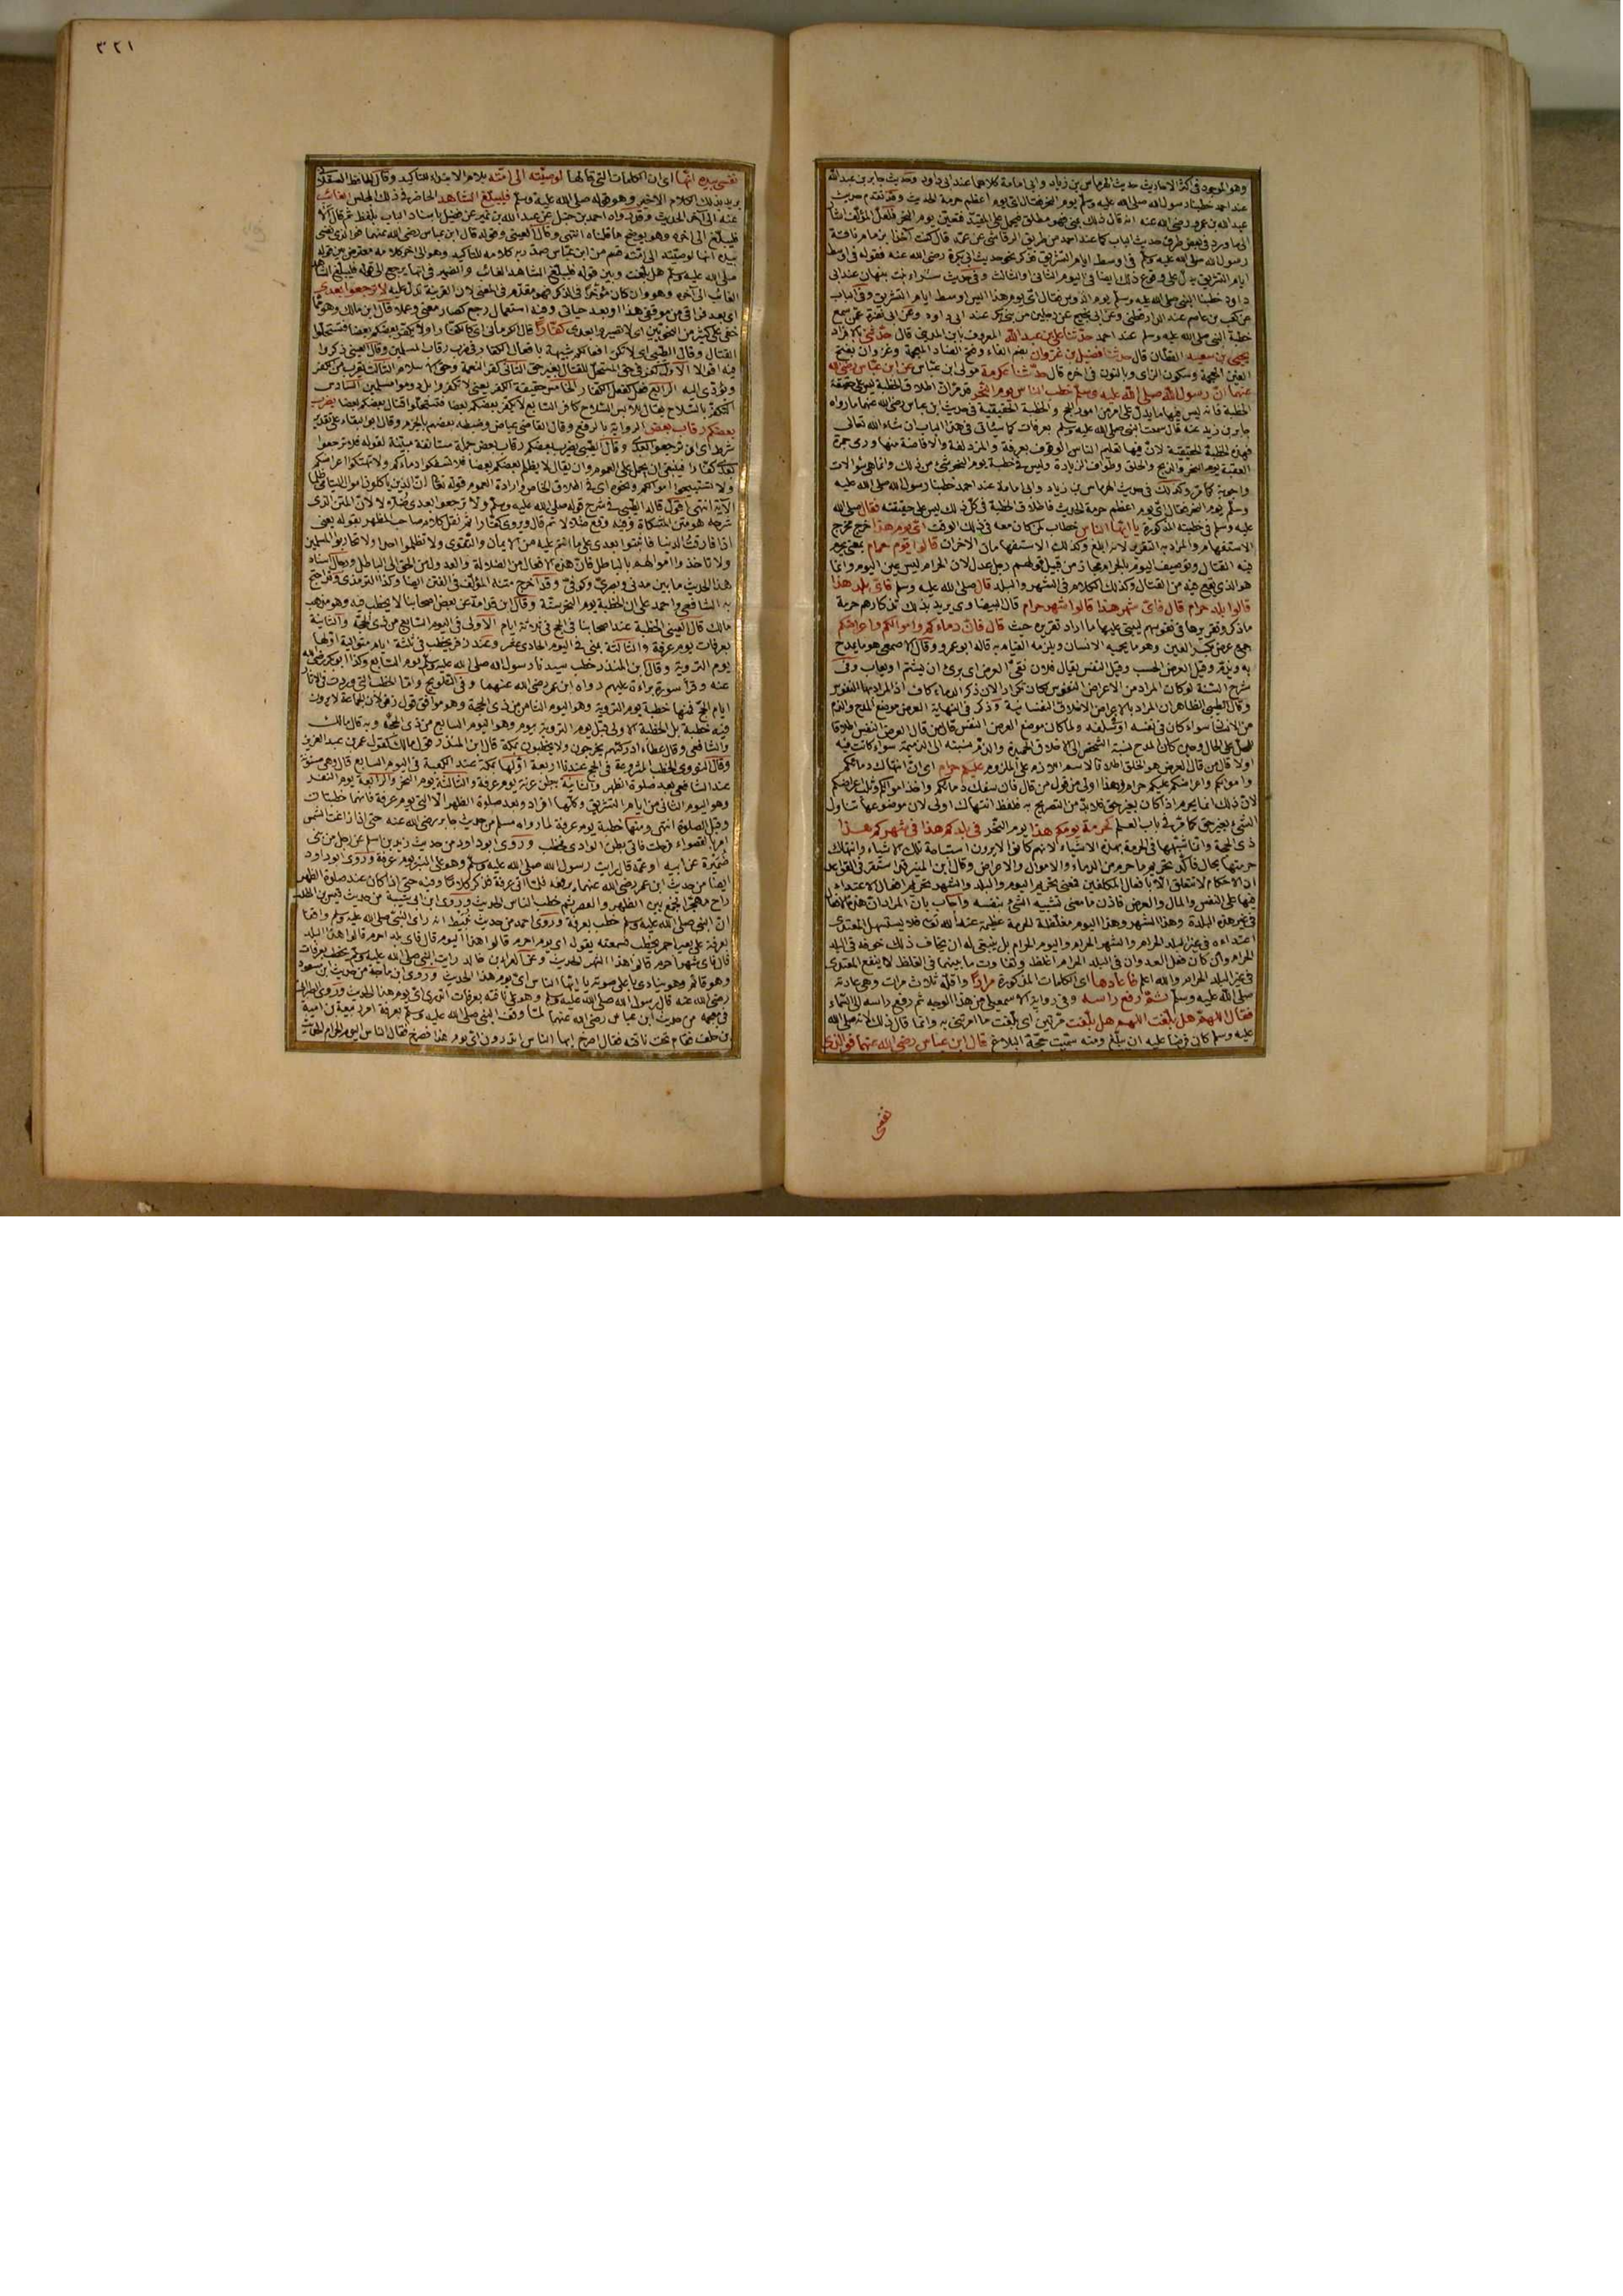 وهو الموجود في اكثر الاحاديث حديث الهرماس بن زياد وابي امامة كلاهما عند ابي داود وحديث جابر بن عبد الله
عند احمد خطبنا رسول الله صلى الله عليه وسلم يوم النحر فقال اى يوم اعظم حرمة الحديث وقد تقدم حديث
عبد الله بن عمرو رضى الله عنه انه قال ذلك بمنى فهو مطلق فيحمل على المقيد فتعين يوم النحر فلعل المؤلف اشار
الى ما ورد في بعض طرق حديث الباب كما عند احمد من طريق الرقاشي عن عمه قال كنت آخذا بزمام ناقة
رسول الله صلى الله عليه وسلم في اوسط ايام التشريق فذكر نحو حديث ابي بكرة رضى الله عنه فقوله في اوسط
ايام التشريق يدل على وقوع ذلك ايضا في اليوم الثاني والثالث وفي حديث سراء بنت نبهان عند ابي
داود خطبنا النبى صلى الله عليه وسلم يوم الرؤس فقال اى يوم هذا اليس اوسط ايام التشريق وفي الباب
عن كعب بن عاصم عند الدارقطني وعن ابن ابي نجيح عن رجلين من بني بكر عند ابي داود وعن ابي نضرة عمن سمع
خطبة النبي صلى الله عليه وسلم عند احمد حدثنا على بن عبد الله المعروف بابن المديني قال حدثني بالافراد
يحيى بن سعيد القطان قال حدثنا فضيل بن غزوان بضم الفاء وفتح الضاد المعجمة وغزوان بفتح
الغين المعجمة وسكون الزاى وبالنون في اخره قال حدثنا عكرمة مولى ابن عباس عن ابن عباس رضى الله
عنهما ان رسول الله صلى الله عليه وسلم خطب الناس يوم النحر قد مر ان اطلاق الخطبة ليس على حقيقة
الخطبة فانه ليس فيها ما يدل على امر من امور الحج والخطبة الحقيقية في حديث ابن عباس رضى الله عنهما ما رواه
جابر بن زيد عنه قال سمعت النبى صلى الله عليه وسلم بعرفات كما سيأتي في هذا الباب ان شاء الله تعالى
فهذه الخطبة الحقيقية لان فيها تعليم الناس الوقوف بعرفة والمزدلفة والافاضة منها ورمى جمرة
العقبة يوم النحر والذبح والحلق وطواف الزيارة وليس في خطبة يوم النحر شئ من ذلك وانما هي سؤالات
واجوبة كما مر وكذلك في حديث الهرماس بن زياد وابي امامة عند احمد خطبنا رسول الله صلى الله عليه
وسلم يوم النحر فقال اى يوم اعظم حرمة الحديث فاطلاق الخطبة في كل ذلك ليس على حقيقته فقال صلى الله
عليه وسلم في خطبته المذكورة يا ايها الناس خطاب لمن كان معه في ذلك الوقت اى يوم هذا خرج مخرج
الاستفهام والمراد به التقرير لانه ابلغ وكذلك الاستفهامان الاخران قالوا يوم حرام يعنى يحرم
فيه القتال وتوصيف اليوم بالحرام مجاز من قبيل قولهم رجل عدل لان الحرام ليس عين اليوم وانما
هو الذي يقع فيه من القتال وكذلك الكلام في الشهر والبلد قال صلى الله عليه وسلم فاى بلد هذا
قالوا بلد حرام قال فاى شهر هذا قالوا شهر حرام قال البيضاوي يريد بذلك تذكارهم حرمة
ما ذكر وتقريرها في نفوسهم ليبني عليها ما اراد تقريره حيث قال فان دماءكم واموالكم واعراضكم
جمع عرض بكسر العين وهو ما يحميه الانسان ويلزمه القيام به قاله ابو عمرو وقال الاصمعي هو ما يمدح
به ويذم وقيل العرض الحسب وقيل النفس يقال فلان نقي العرض اى برئ ان يشتم او يعاب وفي
شرح السنة لو كان المراد من الاعراض النفوس لكان تكرارا لان ذكر الدماء كاف اذ المراد بها النفوس
وقال الطيبي الظاهر ان المراد بالاعراض الاخلاق النفسانية وذكر في النهاية العرض موضع المدح والذم
من الانسان سواء كان في نفسه او سلفه ولما كان موضع العرض النفس قال من قال العرض النفس اطلاقا
للمحل على الحال وحين كان المدح نسبة الشخص الى الاخلاق الحميدة والذم نسبته الى الذميمة سواء كانت فيه
اولا قال من قال العرض هو الخلق اطلاقا لاسم اللازم على الملزوم عليكم حرام اى ان انتهاك دمائكم
واموالكم واعراضكم عليكم حرام وهذا اولى من قول من قال فان سفك دمائكم واخذ اموالكم وثلب اعراضكم
لان ذلك انما يحرم اذا كان بغير حق فلا بد من التصريح به فلفظ انتهاك اولى لان موضوعها تناول
الشئ بغير حق كما مر في باب العلم كحرمة يومكم هذا يوم النحر في بلدكم هذا في شهركم هذا
ذي الحجة وانما شبهها في الحرمة بهذه الاشياء لانهم كانوا لا يرون استباحة تلك الاشياء وانتهاك
حرمتها بحال فاكد تحريم ما حرم من الدماء والاموال والاعراض وقال ابن المنير قد استقر في القواعد
ان الاحكام لا تتعلق الا بافعال المكلفين فمعنى تحريم اليوم والبلد والشهر تحريم افعال الاعتداء
فيها على النفس والمال والعرض فاذن ما معنى تشبيه الشئ بنفسه واجاب بان المراد ان هذه الافعال
في غير هذه البلدة وهذا الشهر وهذا اليوم مغلظة الحرمة عظيمة عند الله تعالى فلا يستسهل المعتدى
اعتداءه في غير البلد الحرام والشهر الحرام واليوم الحرام بل ينبغي له ان يخاف ذلك خوفه في البلد
الحرام وان كان فعل العدوان في البلد الحرام اغلظ وتفاوت ما بينهما في الغلظ لا ينفع المعتدى
في غير البلد الحرام والله اعلم فاعادها اى الكلمات المذكورة مرارا واقله ثلاث مرات وهي عادته
صلى الله عليه وسلم ثم رفع راسه وفي رواية الاسمعيلي من هذا الوجه ثم رفع راسه الى السماء
فقال اللهم هل بلغت اللهم هل بلغت مرتين اى بلغت ما امرتني به وانما قال ذلك لانه صلى الله
عليه وسلم كان فرضا عليه ان يبلغ ومنه سميت حجة البلاغ قال ابن عباس رضى الله عنهما فوالذي
نفسي
٣٢١
نفسي بيده انها اى ان الكلمات التي قالها لوصيته الى امته بلام الابتداء للتاكيد وقال الحافظ العسقلاني
يريد بذلك الكلام الاخير وهو قوله صلى الله عليه وسلم فليبلغ الشاهد الحاضر في ذلك المجلس الغائب
عنه الى آخر الحديث وقد رواه احمد بن حنبل عن عبد الله بن نمير عن فضيل باسناد الباب بلفظ ثم قال الا
فليبلغ الى اخره وهو يوضح ما قلناه انتهى وقال العيني وقوله قال ابن عباس رضى الله عنهما فوالذي نفسي
بيده انها لوصيته الى امته قسم من ابن عباس صدر به كلامه للتاكيد وهو الى اخر كلامه معترض بين قوله
صلى الله عليه وسلم هل بلغت وبين قوله فليبلغ الشاهد الغائب والضمير في انها يرجع الى قوله فليبلغ الشاهد
الغائب الى آخره وهو وان كان مؤخرا في الذكر فهو مقدم في المعنى لان القرينة تدل عليه لا ترجعوا بعدي
اى بعد فراقي من موقفي هذا او بعد حياتي وفيه استعمال رجع كصار معنى وعملا قال ابن مالك وهو مما
خفي على كثير من النحويين اى لا تصيروا بعدي كفارا قال الكرماني اى كالكفار او لا يكفر بعضكم بعضا فتستحلوا
القتال وقال الطيبي اى لا تكن افعالكم شبيهة بافعال الكفار في ضرب رقاب المسلمين وقال العيني ذكروا
فيه اقوالا الاول كفر في حق المستحل للقتال بغير حق الثاني كفر النعمة وحق الاسلام الثالث يقرب من الكفر
ويؤدي اليه الرابع فعل كفعل الكفار الخامس حقيقة الكفر يعني لا تكفروا بل دوموا مسلمين السادس
التكفر بالسلاح يقال للابس السلاح كافر السابع لا يكفر بعضكم بعضا فتستحلوا قتال بعضكم بعضا يضرب
بعضكم رقاب بعض الرواية بالرفع وقال القاضي عياض وضبطه بعضهم بالجزم وقال ابو البقاء على تقدير
شرط اى ان ترجعوا بعدي وقال الطيبي يضرب بعضكم رقاب بعض جملة مستانفة مبينة لقوله فلا ترجعوا
بعدي كفارا فينبغي ان يحمل على العموم وان يقال لا يظلم بعضكم بعضا فلا تسفكوا دماءكم ولا تهتكوا اعراضكم
ولا تستبيحوا اموالكم ونحوه اى في اطلاق الخاص وارادة العموم قوله تعالى ان الذين ياكلون اموال اليتامى ظلما
الآية انتهى اقول قاله الطيبي في شرح قوله صلى الله عليه وسلم ولا ترجعوا بعدي ضلالا لان المتن الذي
شرحه هو متن المشكاة وفيه وقع ضلالا ثم قال ويروى كفارا ثم نقل كلام صاحب المظهر بقوله يعني
اذا فارقت الدنيا فاثبتوا بعدي على ما انتم عليه من الايمان والتقوى ولا تظلموا احدا ولا تحاربوا المسلمين
ولا تاخذوا اموالهم بالباطل فان هذه الافعال من الضلالة والعدول من الحق الى الباطل ورجال اسناد
هذا الحديث ما بين مدني وبصري وكوفي وقد اخرج متنه المؤلف في الفتن ايضا وكذا الترمذي وقد احتج
به الشافعي واحمد على ان الخطبة يوم النحر سنة وقال ابن قدامة عن بعض اصحابنا لا يخطب فيه وهو مذهب
مالك قال العيني الخطبة عند اصحابنا في الحج في ثلاثة ايام الاولى في اليوم السابع من ذي الحجة والثانية
بعرفات يوم عرفة والثالثة بمنى في اليوم الحادي عشر وعند زفر يخطب في ثلثة ايام متوالية اولها
يوم التروية وقال ابن المنذر خطب سيدنا رسول الله صلى الله عليه وسلم يوم السابع وكذا ابو بكر رضى الله
عنه وقرأ سورة براءة عليهم رواه ابن عمر رضى الله عنهما وفي التلويح واما الخطب التي وردت في الآثار
ايام الحج فمنها خطبة يوم التروية وهو اليوم الثامن من ذي الحجة وهو موافق قول زفر لان الجماعة لا يرون
فيه خطبة بل الخطبة الاولى قبل يوم التروية بيوم وهو اليوم السابع من ذي الحجة وبه قال مالك
والشافعي وقال عطاء ادركتهم يخرجون ولا يخطبون بمكة قال ابن المنذر وقول مالك كقول عمر بن عبد العزيز
وقال النووي الخطب المشروعة في الحج عندنا اربعة اولها بمكة عند الكعبة في اليوم السابع قال وهي مسنونة
عند الشافعي بعد صلوة الظهر والثانية ببطن عرنة يوم عرفة والثالثة يوم النحر والرابعة يوم النفر
وهو اليوم الثاني من ايام التشريق وكلها افراد وبعد صلوة الظهر الا التي يوم عرفة فانهما خطبتان
وقبل الصلوة انتهى ومنها خطبة يوم عرفة لما رواه مسلم من حديث جابر رضى الله عنه حتى اذا زاغت الشمس
امر بالقصواء فرحلت فاتى بطن الوادي فخطب وروى ابو داود من حديث زيد بن اسلم عن رجل من بني
ضميرة عن ابيه او عمه قال رايت رسول الله صلى الله عليه وسلم وهو على المنبر يوم عرفة وروى ابو داود
ايضا من حديث ابن عمر رضى الله عنهما يرفعه لما اتى عرفة فذكر كلاما وفيه حتى اذا كان عند صلوة الظهر
راح مهجرا فجمع بين الظهر والعصر ثم خطب الناس الحديث وروى ابن ابي شيبة من حديث قيس بن المطلب
ان النبي صلى الله عليه وسلم خطب بعرفة وروى احمد من حديث نبيط انه راى النبي صلى الله عليه وسلم واقفا
بعرفة على بعير احمر يخطب فسمعته يقول اى يوم احرم قالوا هذا اليوم قال فاى بلد احرم قالوا هذا البلد
قال فاى شهر احرم قالوا هذا الشهر الحديث وعن العداء بن خالد رايت النبي صلى الله عليه وسلم يخطب بعرفات
وهو قائم وهو ينادي باعلى صوته يا ايها الناس اى يوم هذا الحديث وروى ابن ماجة من حديث ابن مسعود
رضى الله عنه قال رسول الله صلى الله عليه وسلم وهو على ناقته بعرفات اتدري اى يوم هذا الحديث وروى الطبراني
في معجمه من حديث ابن عباس رضى الله عنهما لما وقف النبي صلى الله عليه وسلم بعرفة امر ربيعة بن امية
بن خلف فقام تحت ناقته فقال اصرخ ايها الناس اتدرون اى يوم هذا فصرخ فقال الناس اليوم الحرام الحديث